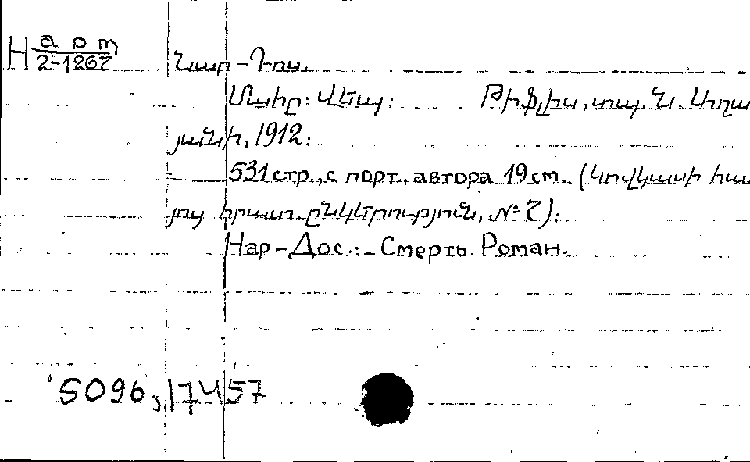 Н арт
2-1267
Նար-Դոս.
Մահը: Վեպ: Թիֆլիս, տպ. Ն. Աղա
յանի, 1912:
531 стр., с порт. автора 19 см. (Կովկասի հա
յոց հրատ. ընկերություն, № 2):
Нар-Дос.:- Смерть. Роман.
5096, 17457